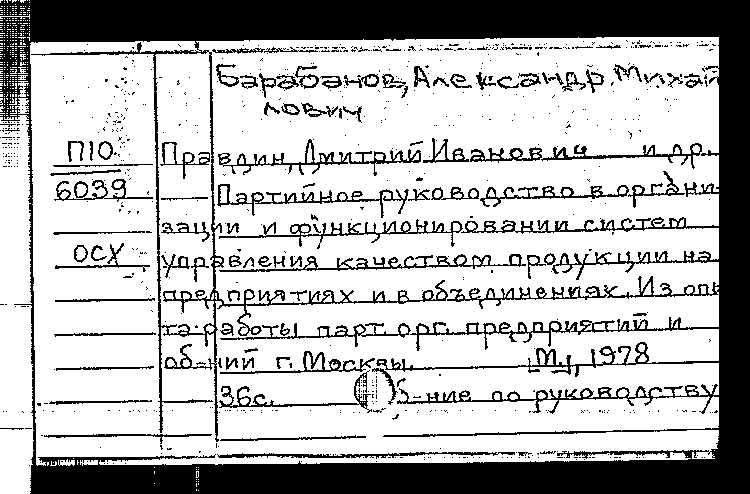 Барабанов, Александр Михай
лович
П10
6039
ОСХ
Правдин, Дмитрий Иванович и др.
Партийное руководство в органи-
зации и функционировании систем
управления качеством продукции на
предприятиях и в объединениях. Из опы
та работы парт. орг. предприятий и
об-ний г. Москвы. М., 1978
36с. б-ние по руководству